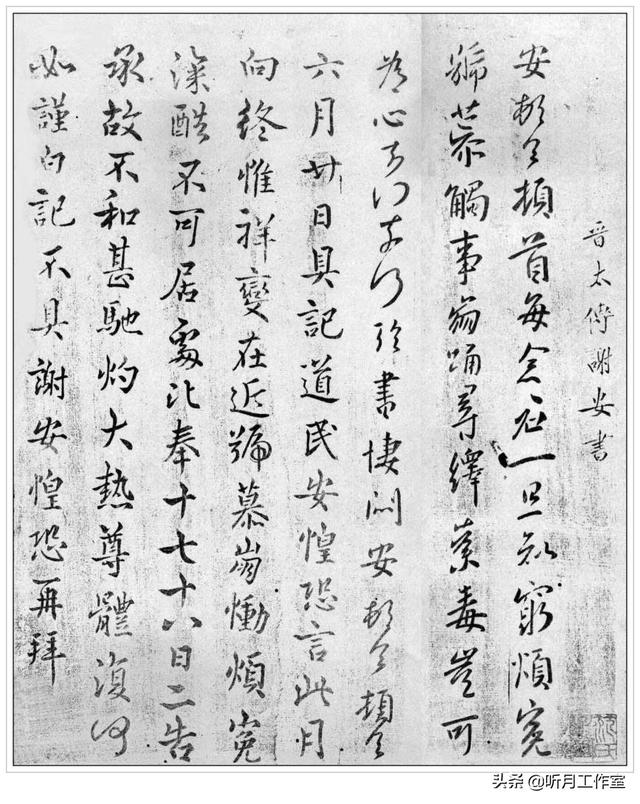 晉太傅謝安書
安頓首頓首每念君一旦知窮煩冤
號慕觸事崩踊尋繹荼毒豈可
為心奈何奈何臨書悽悶安頓首頓首
六月廿日具記道民安惶恐言此月
向終惟祥變在近號慕崩慟煩冤
深酷不可居處比奉十七十八日二告
承故不和甚馳灼大熱尊體復何
如謹白記不具謝安惶恐再拜
头条 @听月工作室